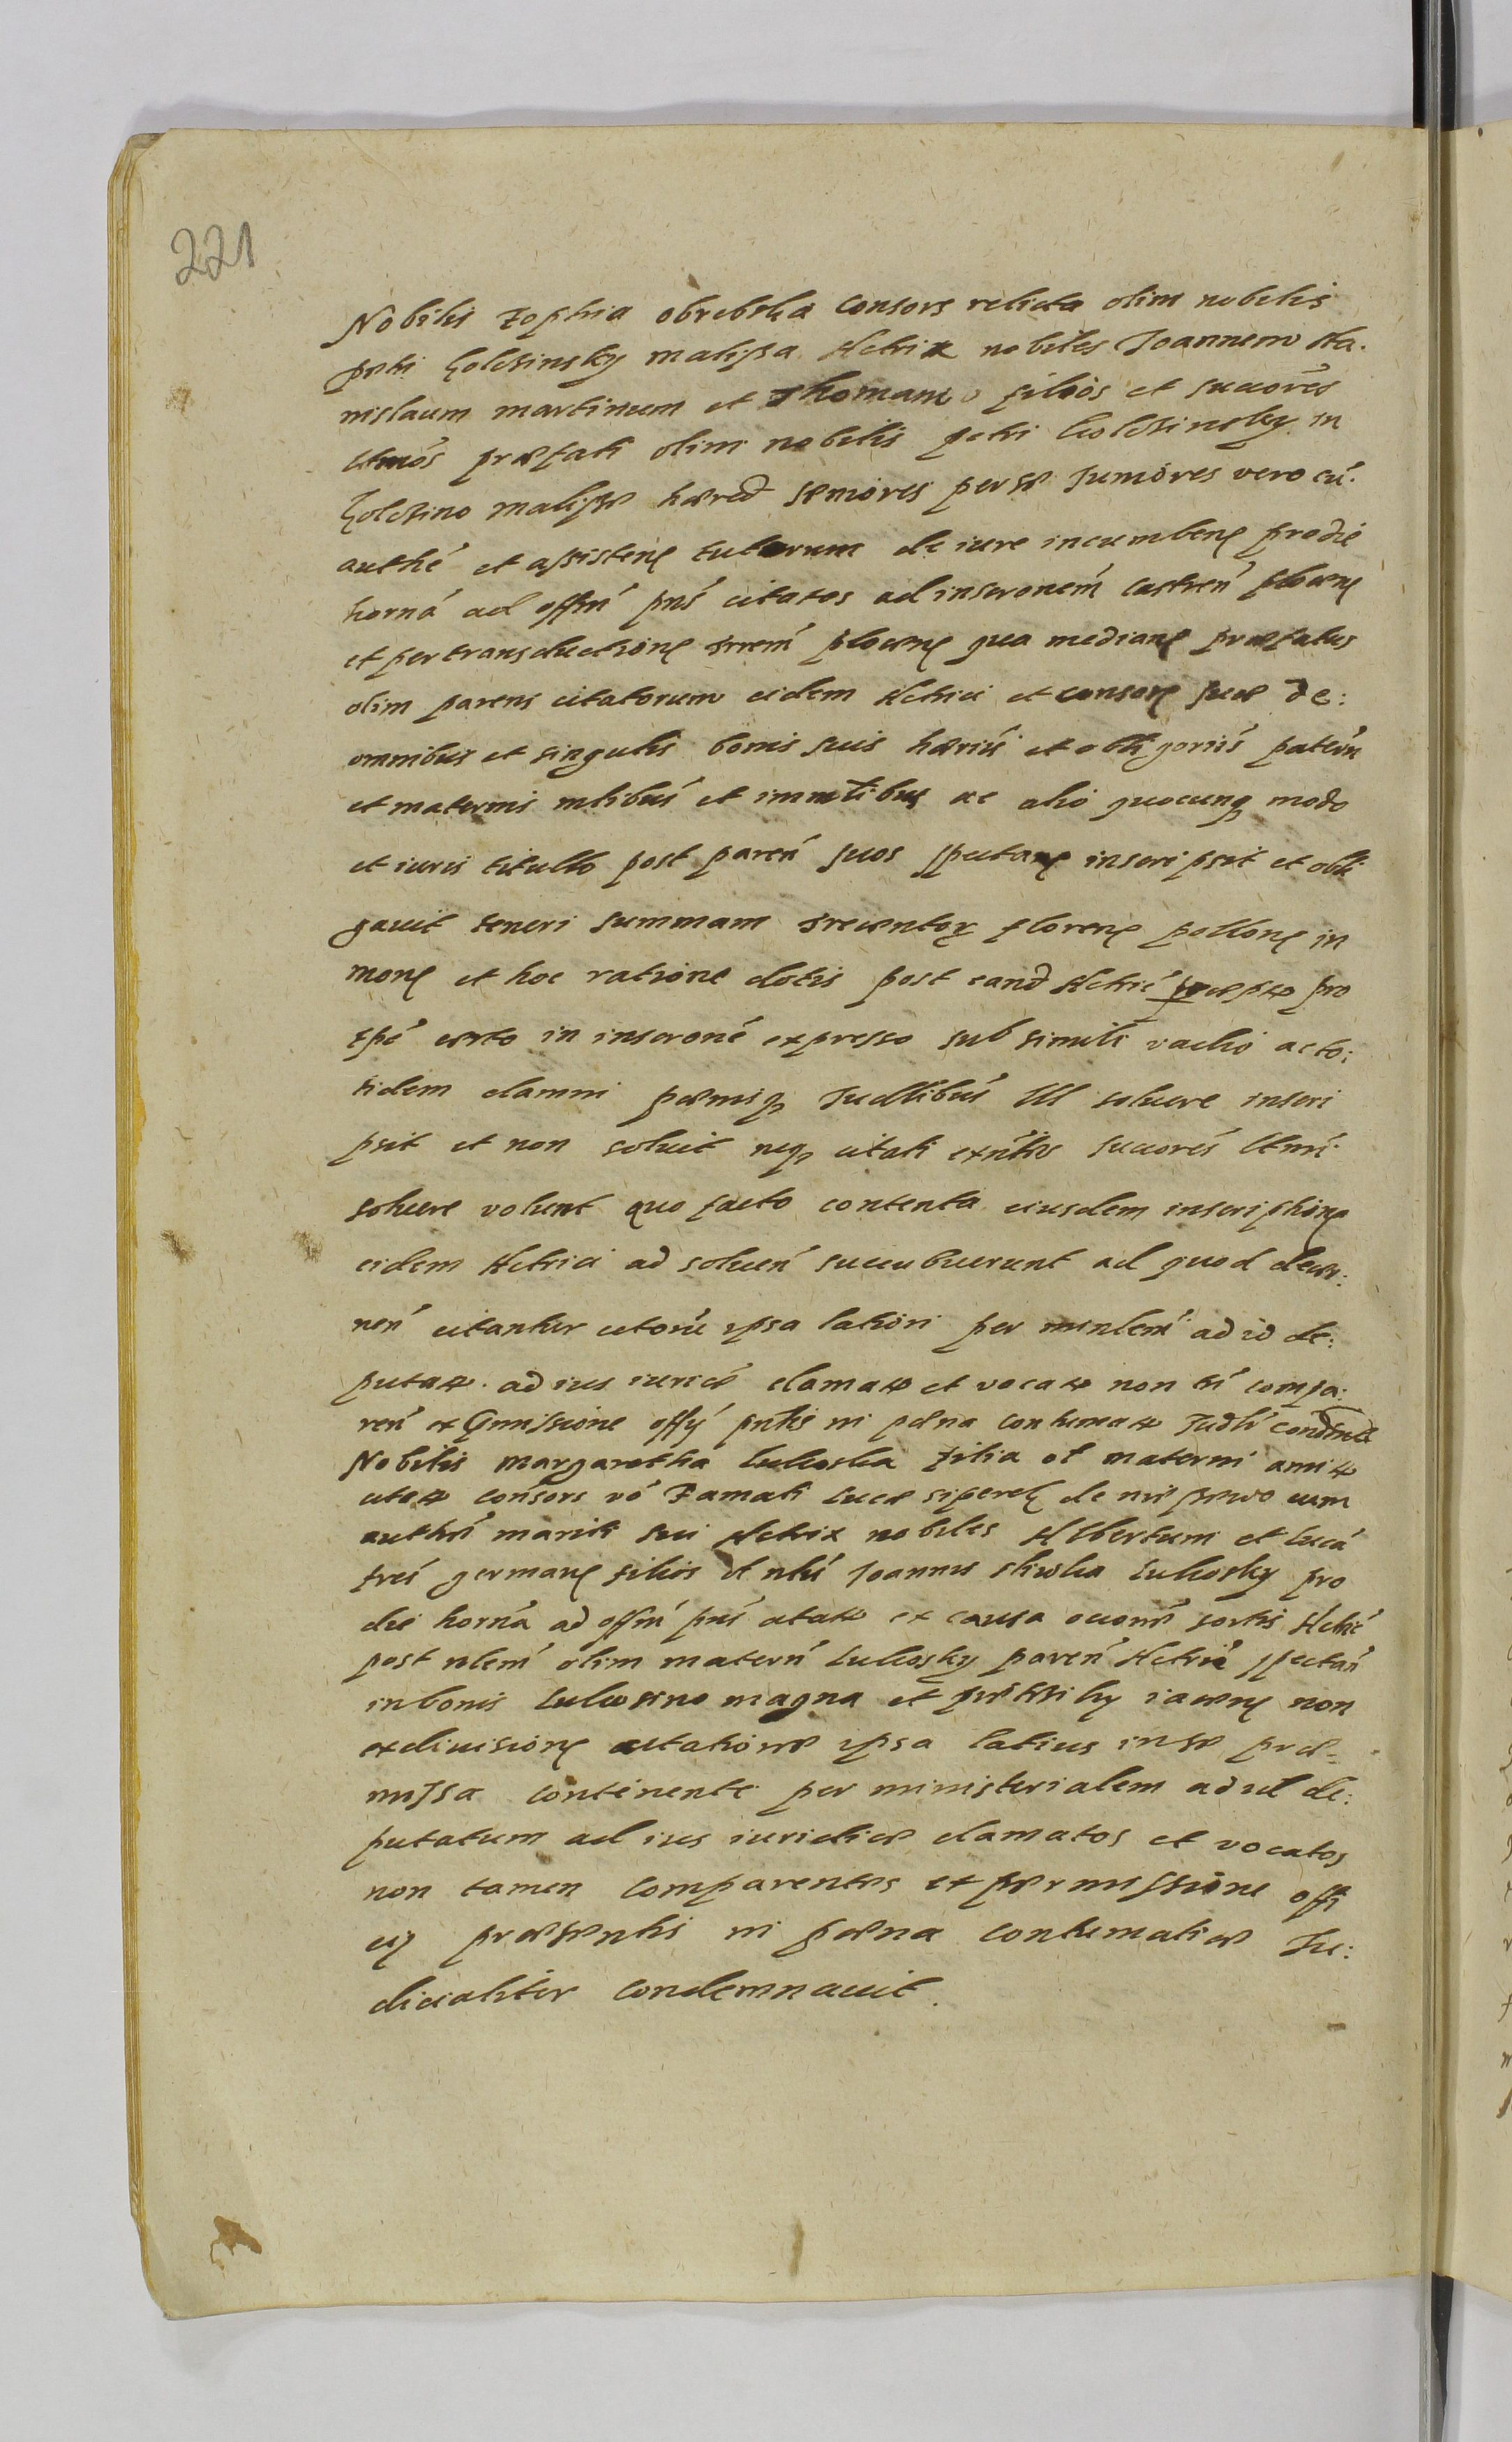 221
Nobilis Zophia obrebska consors relicta olim nobilis
petri Goldzinsky malissa Actrix nobiles Joannem sta.
nislaum martinum et Thomam filios et succores
ltmos præfati olim nobilis petri Goldzinsky in
Goldzino malissæ hæred seniores per se Juniores vero cu.
authe et assisten tutorum de iure incumben prodie
horna ad offm pns citatos ad inscronem castren plocen
et per transductione trrem plocen qua median præfatus
olim parens citatorum eidem Actrici et consor suæ de:
omnibus et singulis bonis suis hæriis et obligoriis patern
et maternis mlibus et immtibus ac alio quocunq modo
et iuris titullo post paren suos spectan inscripsit et obli
gauit teneri summam trecentor floren pollon in
mon et hoc ratione dotis post eand Actric recepta pro
tpe certo in inscrone expresso sub simili vadio acto:
tidem damni pænisq Judlibus Ill soluere inscri
psit et non soluit neq citati exntes succores ltmi
soluere volunt quo facto contenta eiusdem inscription
eidem Actrici ad soluen succubuerunt ad quod decer:
nen citantur citone ipsa latiori per minlem ad id de:
putat. ad ius iurice clamat et vocat non tn compa:
ren ex Gmissione offy pntis in pæna contumat Judli condemt
Nobilis margaretha lukoska filia ol materni amit
citat consors vo Famati lucæ siperek de cum
authe mariti sui Actrix nobiles Albertum et luca
fres german filios ol nlis Joannis sliwka lukosky pro
die horna ad offm pns citat ex causa sortis Actric
post nlem olim matern lukosky paren Actric spectan
in bonis lukoszino magna et iacen non
ex diuision citatione ipsa latius in se præ-
missa continente per ministerialem ad id de:
putatum ad ius iuridice clamatos et vocatos
non tamen comparentes ex permissione offi
cy præsentis in pæna contumatiæ Ju:
dicialiter condemnauit.